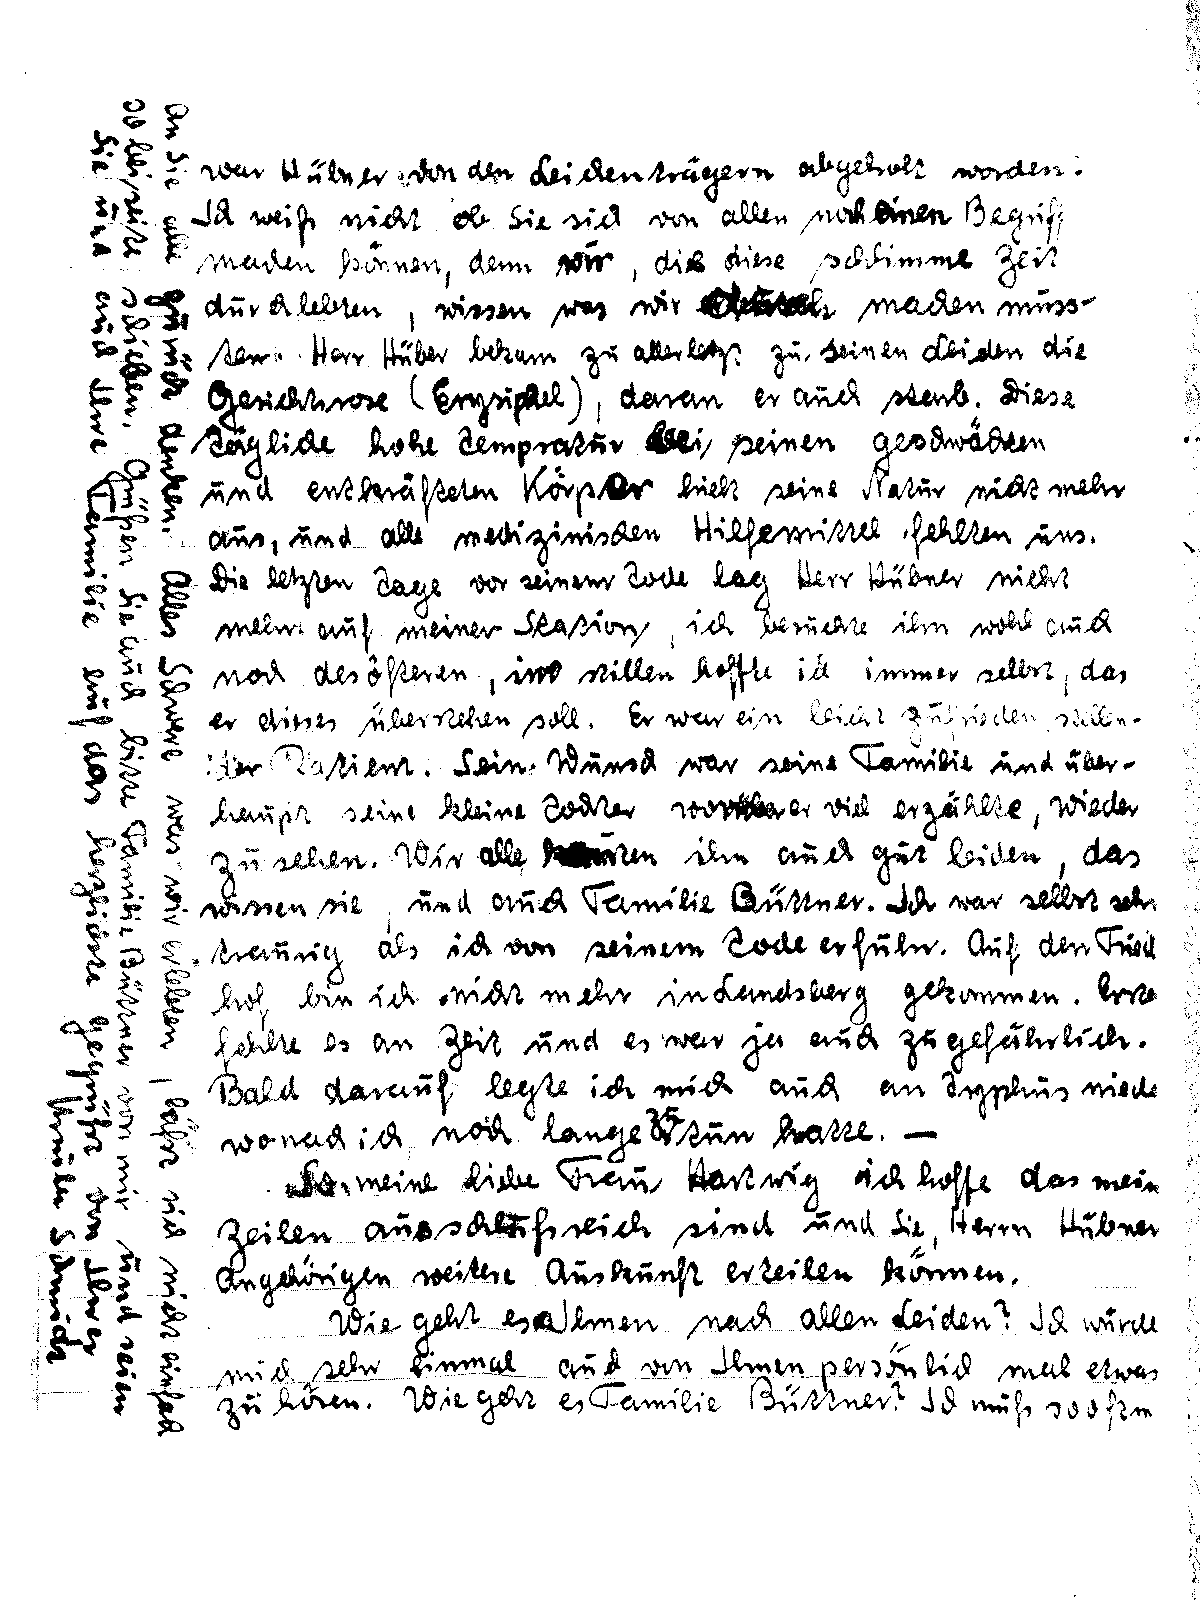 war Hübner von den Leichenträgern abgeholt worden.
Ich weiß nicht ob Sie sich von allen noch einen Begriff
machen können, denn wir, die diese schlimme Zeit
durchlebten, wissen was wir machen muss-
ten. Herr Hüber bekam zu allerletzt zu seinen Leiden die
Gesichtsrose (Erysipel), daran er auch starb. Diese
tägliche hohe Tempratur bei seinen geschwächten
und entkräfteten Körper hielt seine Natur nicht mehr
aus, und alle medizinischen Hilfsmittel fehlten uns.
Die letzten Tage vor seinem Tode lag Herr Hübner nicht
mehr auf meiner Station, ich besuchte ihn wohl auch
noch desöfteren, im stillen hoffte ich immer selbst, das
er dieses überstehen soll. Er war ein leicht zufrieden stellen-
der Patient. Sein Wunsch war seine Familie und über-
haupt seine kleine Tochter worüber er viel erzählte, wieder
zu sehen. Wir alle konnten ihn auch gut leiden, das
wissen sie, und auch Familie Büttner. Ich war selbst sehr
traurig als ich von seinem Tode erfuhr. Auf den Fried
hof bin ich nicht mehr in Landsberg gekommen. Erste
fehlte es an Zeit und es war ja auch zu gefährlich.
Bald darauf legte ich mich auch an Typhus niede
wonach ich noch lange zu tun hatte. —
So meine liebe Frau Hartwig ich hoffe das mein
Zeilen ausschlußreich sind und Sie, Herrn Hübner
Angehörigen weitere Auskunft erteilen können.
Wie geht es Ihnen nach allen Leiden? Ich würde
mich sehr einmal auch von Ihnen persönlich mal etwas
zu hören. Wie geht es Familie Büttner? Ich muß so oft
An Sie alle zurück denken. Alles Schwere was wir erlebten, läßt sich nicht einfach
so bei seite schieben. Grüßen Sie auch bitte Familie Büttner von mir und seien
Sie und auch Ihre Familie auf das herzlichste gegrüßt von Ihrer
Schmidt